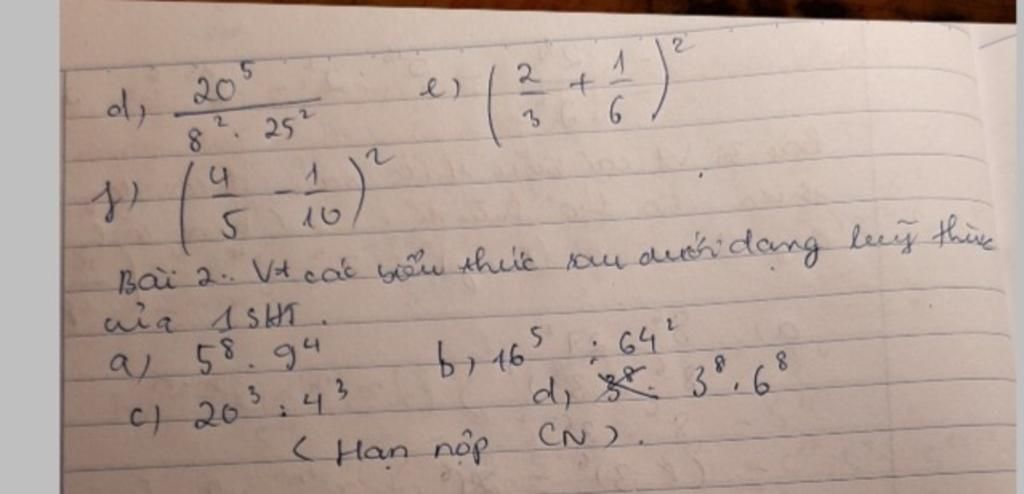 d, 20⁵ / 8² . 25² e) (2/3 + 1/6)²
f) (4/5 - 1/10)²
Bài 2.. Vt các biểu thức sau dưới dạng luỹ thừa
của 1 SHT.
a) 5⁸ . 9⁴ b, 16⁵ : 64²
c) 20³ : 4³ d, 3⁸ . 6⁸
(Hạn nộp CN).